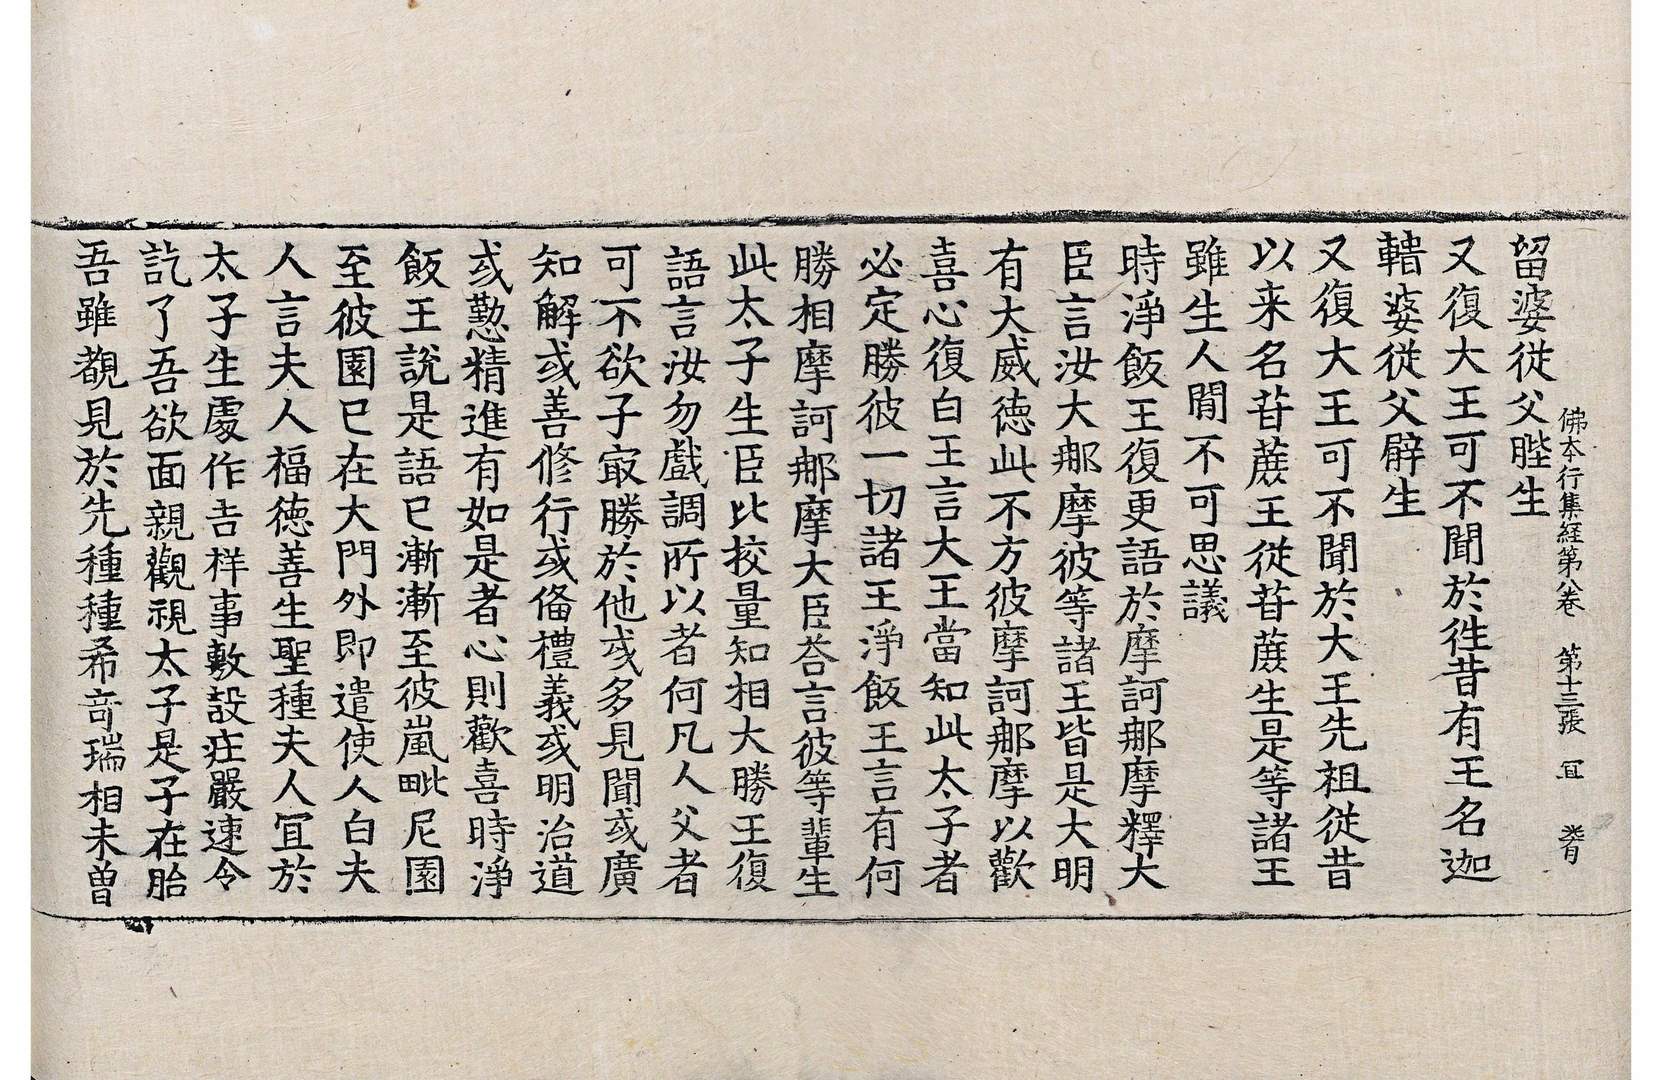 佛本行集經第八卷 第十三張 冝
留婆從父䏶生
又復大王可不聞於徃昔有王名迦
轖婆從父臂生
又復大王可不聞於大王先祖從昔
以来名苷蔗王從苷蔗生是等諸王
雖生人間不可思議
時淨飯王復更語於摩訶那摩釋大
臣言汝大那摩彼等諸王皆是大明
有大威德此不方彼摩訶那摩以歡
喜心復白王言大王當知此太子者
必定勝彼一切諸王淨飯王言有何
勝相摩訶那摩大臣荅言彼等輩生
此太子生臣比挍量知相大勝王復
語言汝勿戲調所以者何凡人父者
可不欲子冣勝於他或多見聞或廣
知解或善修行或俻禮義或明治道
或懃精進有如是者心則歡喜時淨
飯王說是語已漸漸至彼嵐毗尼園
至彼園已在大門外即遣使人白夫
人言夫人福德善生聖種夫人冝於
太子生處作吉祥事敷設庄嚴速令
訖了吾欲面親觀視太子是子在胎
吾雖覩見於先種種希奇瑞相未曾